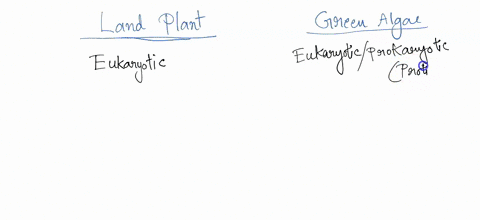 Land Plant
Green Algae
Eukaryotic
Eukaryotic/Prokaryotic
(Prot